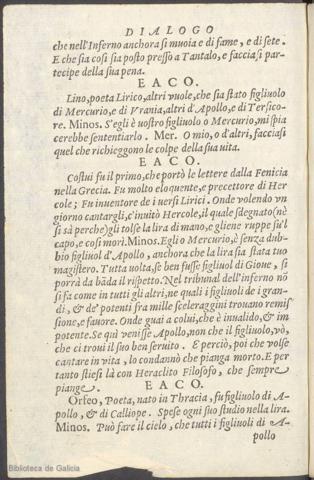 DIALOGO
che nell'Inferno anchora si muoia e di fame, e di sete.
E che sia così sia posto presso a Tantalo, e facciasi par-
tecipe della sua pena.
EACO.
Lino, poeta Lirico, altri vuole, che sia stato figliuolo
di Mercurio, e di Vrania, altri d'Apollo, e di Tersico-
re. Minos. S'egli è uostro figliuolo o Mercurio, mi spia
cerebbe sententiarlo. Mer. O mio, o d'altri, facciasi
quel che richieggono le colpe della sua uita.
EACO.
Costui fu il primo, che portò le lettere dalla Fenicia
nella Grecia. Fu molto eloquente, e precettore di Her
cole; Fu inuentore de i uersi Lirici. Onde volendo vn
giorno cantargli, c'inuitò Hercole, il quale sdegnato (nè
si sà perche) gli tolse la lira di mano, e gliene ruppe su'l
capo, e così morì. Minos. Egli o Mercurio, è senza dub-
bio figliuol d'Apollo, anchora che la lira sia stata tuo
magistero. Tutta uolta, se ben fusse figliuol di Gioue, si
porrà da bãda il rispetto. Nel tribunal dell'inferno nõ
si fa come in tutti gli altri, ne quali i figliuoli de i gran-
di, & de' potenti fra mille sceleraggini trouano remis
sione, e fauore. Onde guai a colui, che è inualido, & im
potente. Se quì venisse Apollo, non che il figliuolo, vò,
che ci troui il suo ben seruito. E perciò, poi che volse
cantare in vita, lo condannò che pianga morto. E per
tanto stiesi là con Heraclito Filosofo, che sempre
piange.
EACO.
Orfeo, Poeta, nato in Thracia, fu figliuolo di A-
pollo, & di Calliope. Spese ogni suo studio nella lira.
Minos. Può fare il cielo, che tutti i figliuoli di A-
pollo
Biblioteca de Galicia